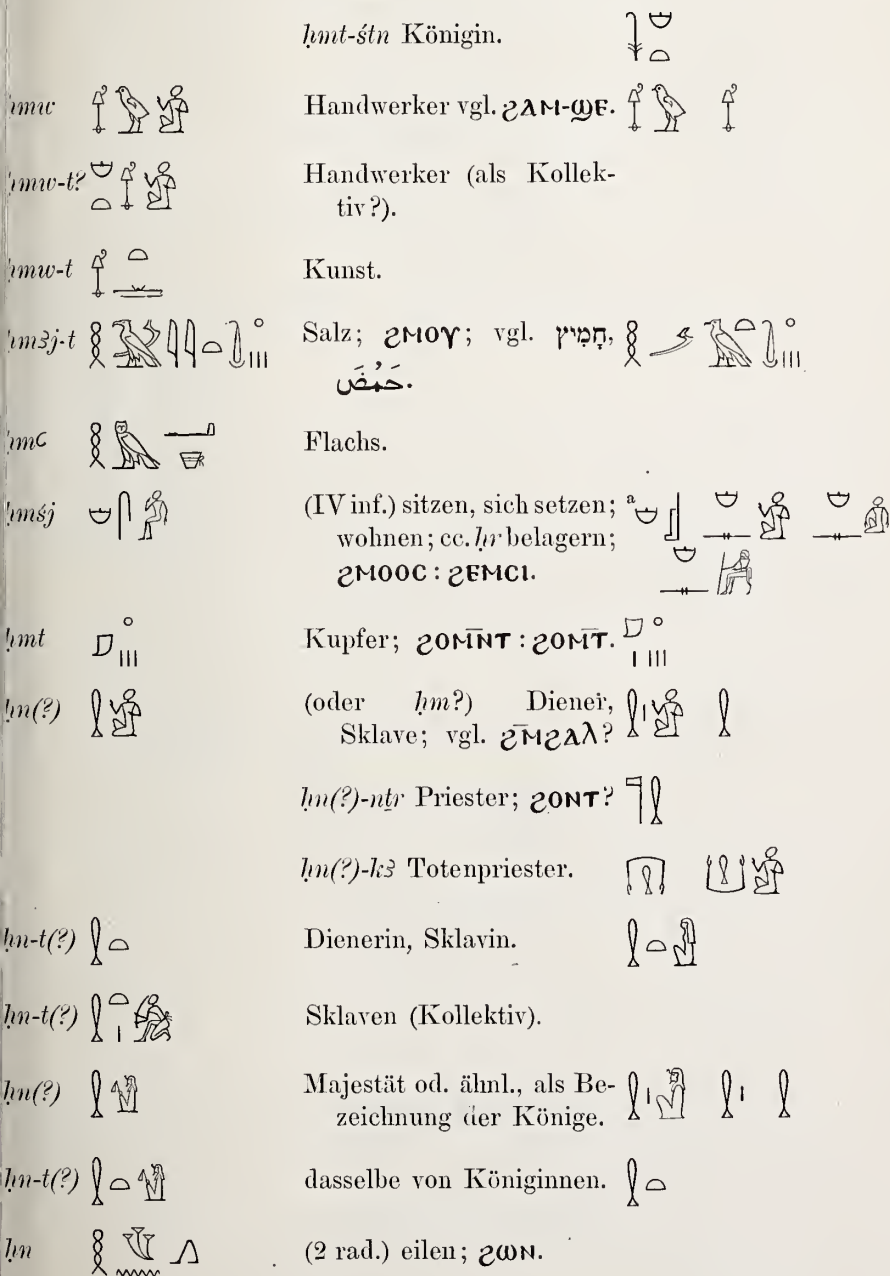 ḥmt-śtn Königin. 𓇓𓈞𓏏
ḥmw 𓍋𓅱𓀀 Handwerker vgl. ϩⲁⲙ-ϣⲉ. 𓍋𓅱 𓍋
ḥmw-t? 𓈞𓏏𓍋𓀀 Handwerker (als Kollek-
tiv?).
ḥmw-t 𓍋𓏏𓏛 Kunst.
ḥmꜣj-t Salz; ϩⲙⲟⲩ; vgl. חָמִיץ,
حَمُضَ.
ḥmꜥ 𓎛𓅓𓂝 Flachs.
ḥmśj 𓈞𓋴 (IV inf.) sitzen, sich setzen; a
wohnen; cc. ḥr belagern;
ϩⲙⲟⲟⲥ : ϩⲉⲙⲥⲓ.
ḥmt Kupfer; ϩⲟⲙ̄ⲛⲧ : ϩⲟⲙ̄ⲧ.
ḥn(?) 𓍛𓀀 (oder ḥm?) Diener, 𓍛𓏤𓀀 𓍛
Sklave; vgl. ϩⲙ̄ϩⲁⲗ?
ḥn(?)-nṯr Priester; ϩⲟⲛⲧ? 𓊹𓍛
ḥn(?)-kꜣ Totenpriester.
ḥn-t(?) 𓍛𓏏 Dienerin, Sklavin. 𓍛𓏏𓁐
ḥn-t(?) 𓍛𓏏𓏤 Sklaven (Kollektiv).
ḥn(?) 𓍛 Majestät od. ähnl., als Be-
zeichnung der Könige. 𓍛𓏤 𓍛
ḥn-t(?) 𓍛𓏏 dasselbe von Königinnen. 𓍛𓏏
ḥn 𓎛𓇰𓈖𓂻 (2 rad.) eilen; ϩⲱⲛ.